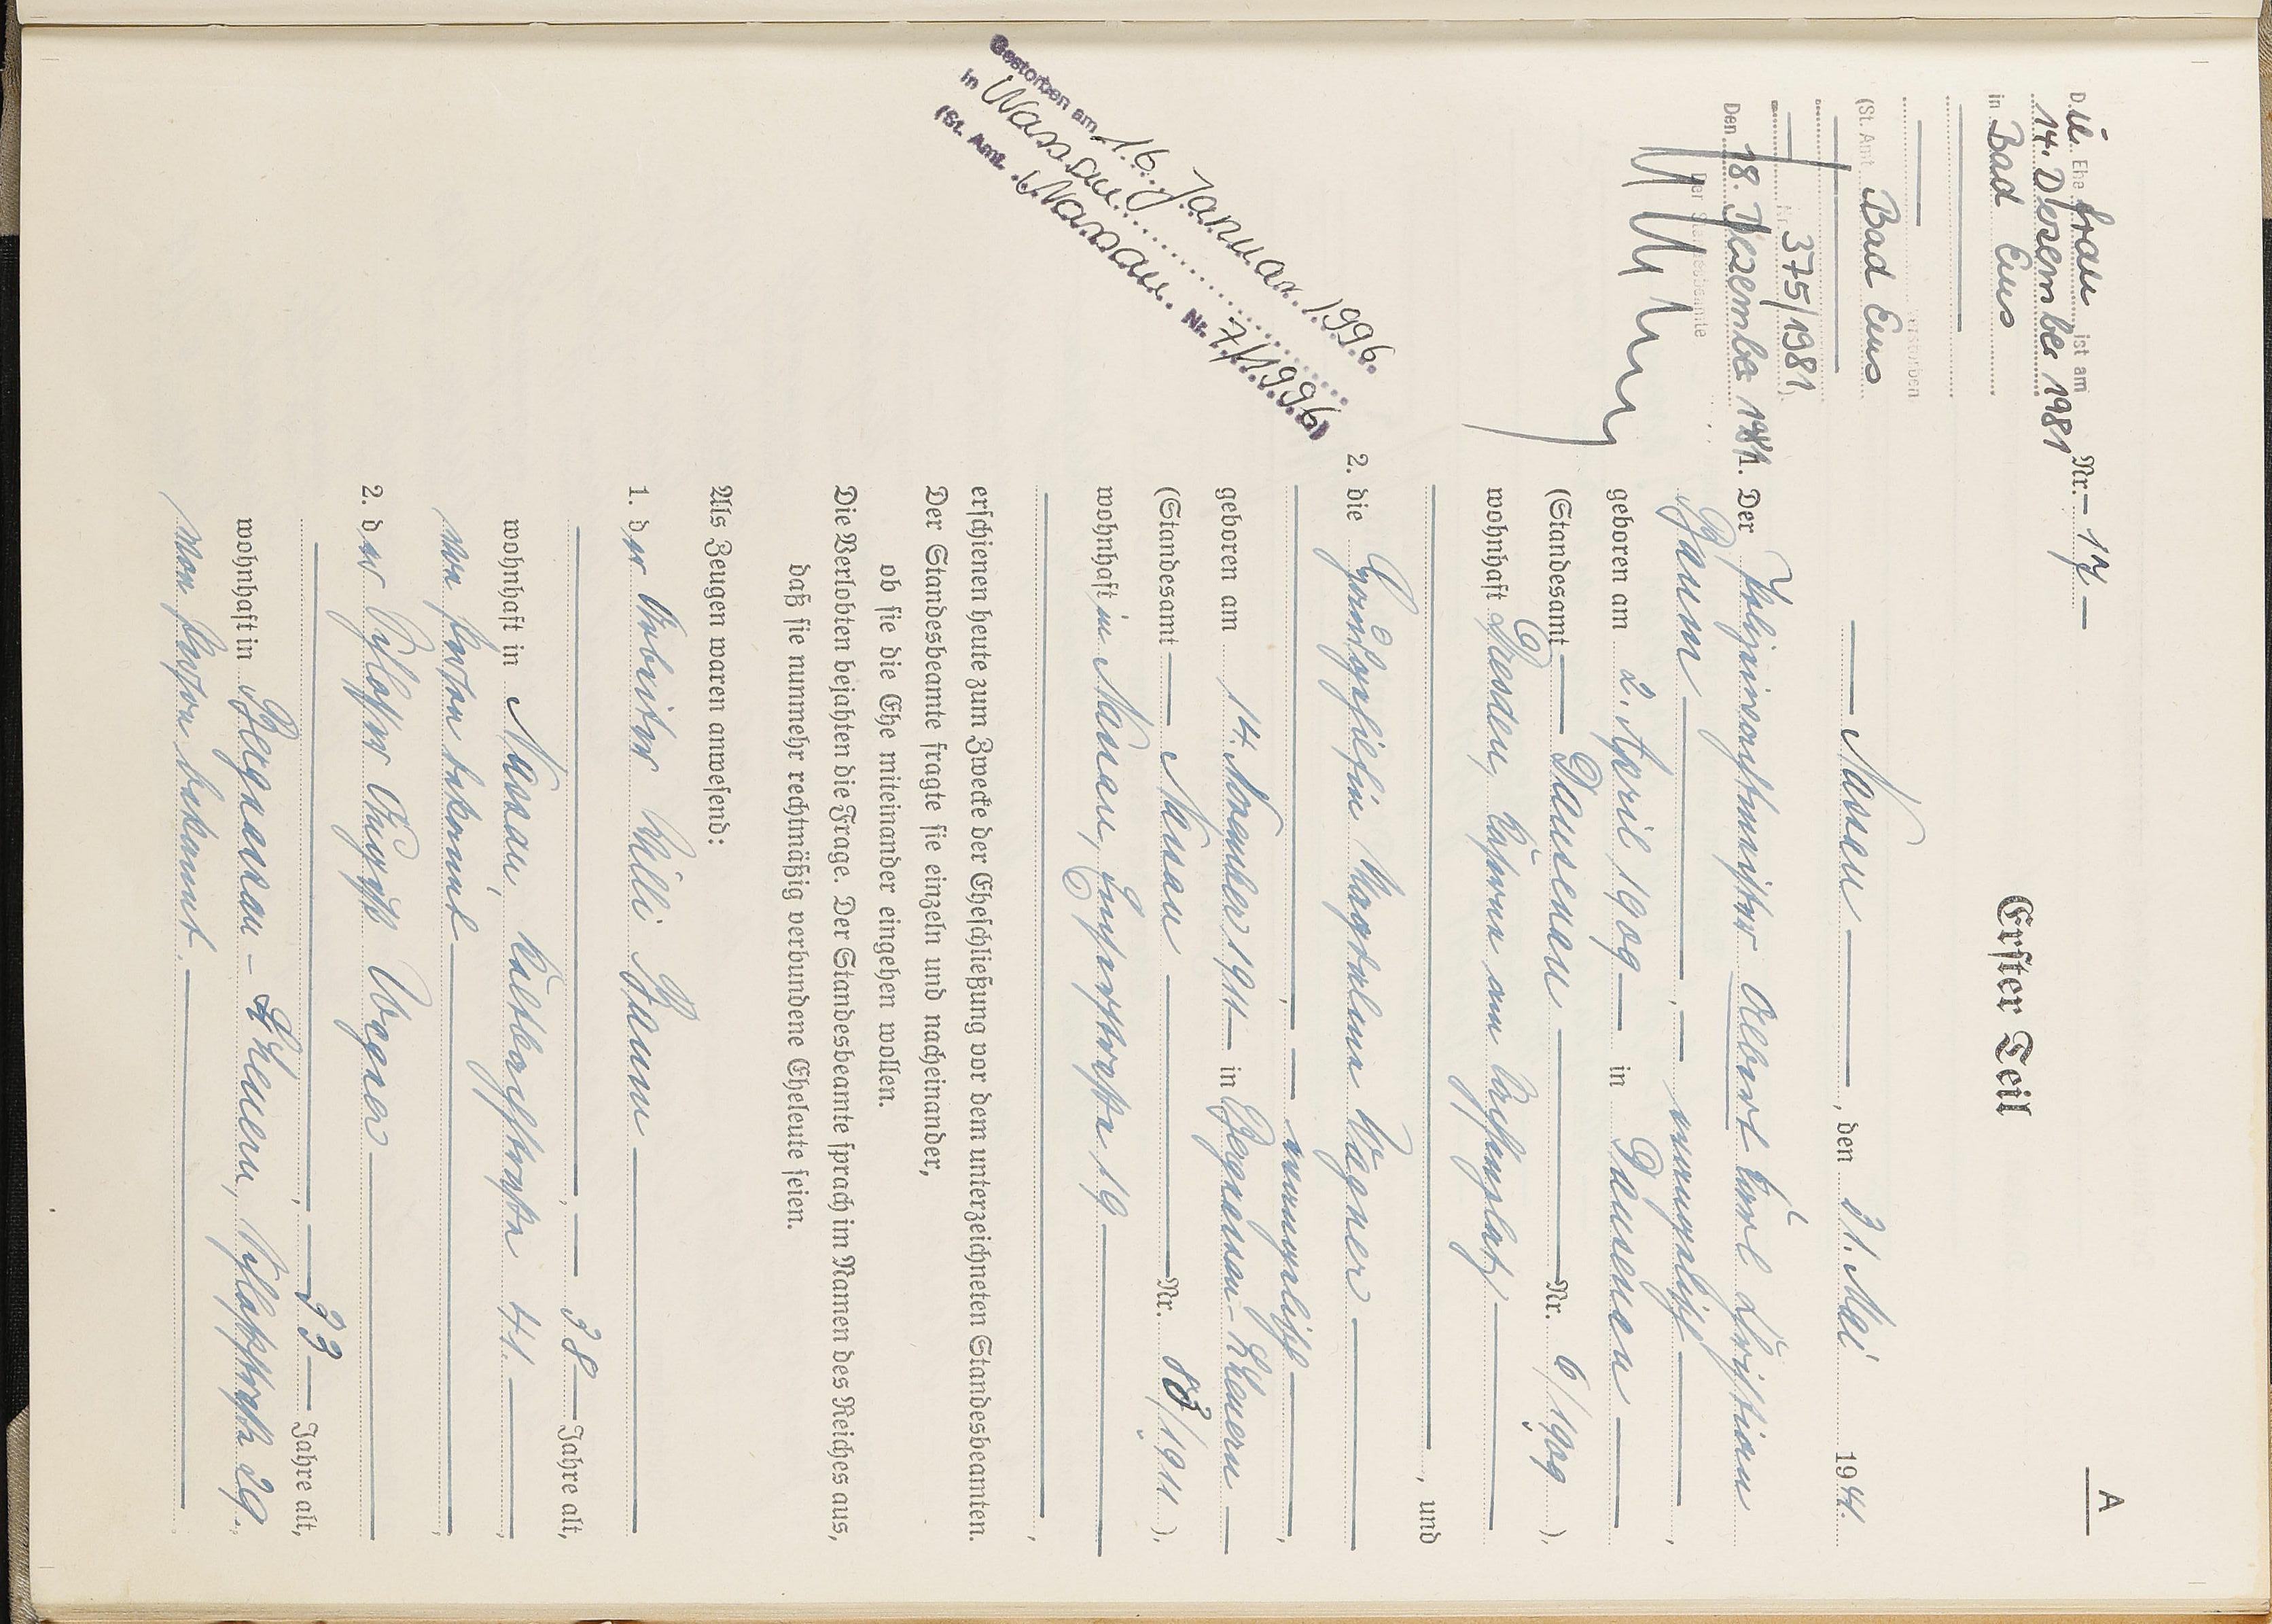 A
Nr. 17
Erster Teil
Nassau, den 31. Mai 1941.
1. Der Polizeiwachtmeister Albert Karl Christian
Baum, evangelisch,
geboren am 2. April 1909 in Dausenau
(Standesamt Dausenau Nr. 6/1909),
wohnhaft Dresden, Kaserne am
, und
2. die Magdalena Wagner
, evangelisch,
geboren am 14. November 1911 in Bergnassau-Scheuern
(Standesamt Nassau Nr. 83/1911),
wohnhaft in Nassau, Emserstraße 19
,
erschienen heute zum Zwecke der Eheschließung vor dem unterzeichneten Standesbeamten.
Der Standesbeamte fragte sie einzeln und nacheinander,
ob sie die Ehe miteinander eingehen wollen.
Die Verlobten bejahten die Frage. Der Standesbeamte sprach im Namen des Reiches aus,
daß sie nunmehr rechtmäßig verbundene Eheleute seien.
Als Zeugen waren anwesend:
1. der Arbeiter Willi Baum
, 38 Jahre alt,
wohnhaft in Nassau, 41.
von Person bekannt,
2. der Schlosser August Wagner
, 33 Jahre alt,
wohnhaft in Bergnassau-Scheuern, 29.,
von Person bekannt.
Die Ehefrau ist am
14. Dezember 1981
in Bad Ems
verstorben
(St. Amt Bad Ems
Nr. 375/1981)
Den 18. Dezember 1981.
Der Standesbeamte
Gestorben am 16. Januar 1996
in Nassau
(St. Amt Nassau Nr. 7/1996)